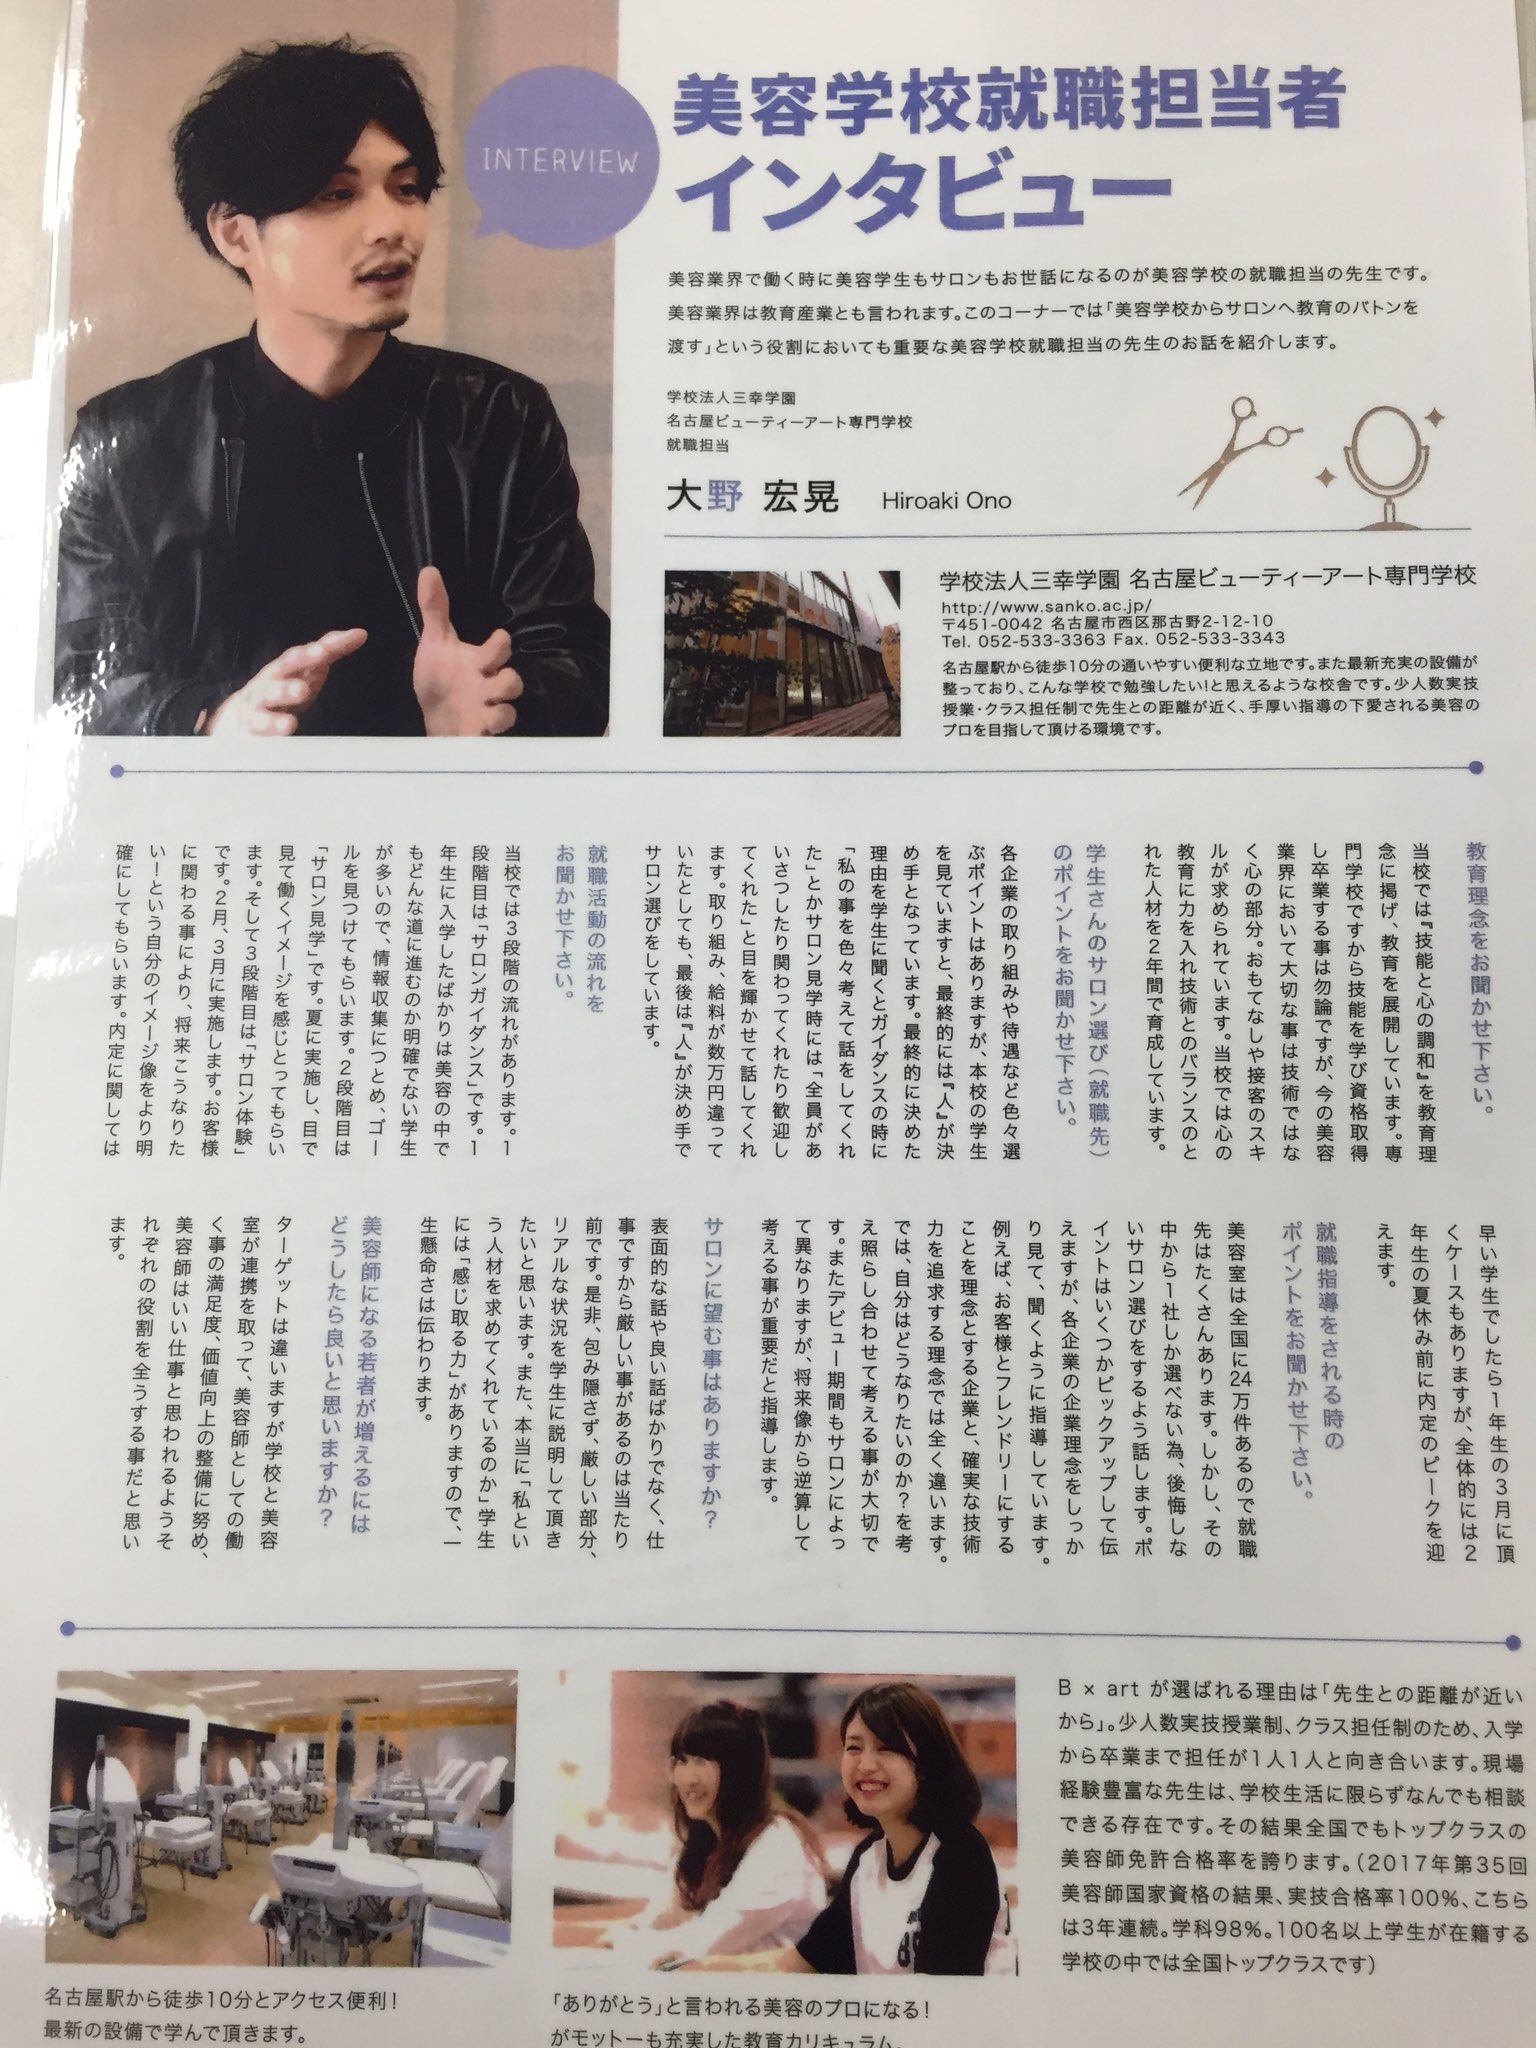 INTERVIEW
美容学校就職担当者
インタビュー
美容業界で働く時に美容学生もサロンもお世話になるのが美容学校の就職担当の先生です。
美容業界は教育産業とも言われます。このコーナーでは「美容学校からサロンへ教育のバトンを
渡す」という役割においても重要な美容学校就職担当の先生のお話を紹介します。
学校法人三幸学園
名古屋ビューティーアート専門学校
就職担当
大野 宏晃 Hiroaki Ono
学校法人三幸学園 名古屋ビューティーアート専門学校
http://www.sanko.ac.jp/
〒451-0042 名古屋市西区那古野2-12-10
Tel. 052-533-3363 Fax. 052-533-3343
名古屋駅から徒歩10分の通いやすい便利な立地です。また最新充実の設備が
整っており、こんな学校で勉強したい!と思えるような校舎です。少人数実技
授業・クラス担任制で先生との距離が近く、手厚い指導の下愛される美容の
プロを目指して頂ける環境です。
教育理念をお聞かせ下さい。
当校では『技能と心の調和』を教育理
念に掲げ、教育を展開しています。専
門学校ですから技能を学び資格取得
し卒業する事は勿論ですが、今の美容
業界において大切な事は技術ではな
く心の部分。おもてなしや接客のスキ
ルが求められています。当校では心の
教育に力を入れ技術とのバランスのと
れた人材を２年間で育成しています。
学生さんのサロン選び（就職先）
のポイントをお聞かせ下さい。
各企業の取り組みや待遇など色々選
ぶポイントはありますが、本校の学生
を見ていますと、最終的には『人』が決
め手となっています。最終的に決めた
理由を学生に聞くとガイダンスの時に
「私の事を色々考えて話をしてくれ
た」とかサロン見学時には「全員があ
いさつしたり関わってくれたり歓迎し
てくれた」と目を輝かせて話してくれ
ます。取り組み、給料が数万円違って
いたとしても、最後は『人』が決め手で
サロン選びをしています。
就職活動の流れを
お聞かせ下さい。
当校では３段階の流れがあります。１
段階目は「サロンガイダンス」です。１
年生に入学したばかりは美容の中で
もどんな道に進むのか明確でない学生
が多いので、情報収集につとめ、ゴー
ルを見つけてもらいます。２段階目は
「サロン見学」です。夏に実施し、目で
見て働くイメージを感じとってもらい
ます。そして３段階目は「サロン体験」
です。２月、３月に実施します。お客様
に関わる事により、将来こうなりた
い！という自分のイメージ像をより明
確にしてもらいます。内定に関しては
早い学生でしたら１年生の３月に頂
くケースもありますが、全体的には２
年生の夏休み前に内定のピークを迎
えます。
就職指導をされる時の
ポイントをお聞かせ下さい。
美容室は全国に24万件あるので就職
先はたくさんあります。しかし、その
中から１社しか選べない為、後悔しな
いサロン選びをするよう話します。ポ
イントはいくつかピックアップして伝
えますが、各企業の企業理念をしっか
り見て、聞くように指導しています。
例えば、お客様とフレンドリーにする
ことを理念とする企業と、確実な技術
力を追求する理念では全く違います。
では、自分はどうなりたいのか？を考
え照らし合わせて考える事が大切で
す。またデビュー期間もサロンによっ
て異なりますが、将来像から逆算して
考える事が重要だと指導します。
サロンに望む事はありますか？
表面的な話や良い話ばかりでなく、仕
事ですから厳しい事があるのは当たり
前です。是非、包み隠さず、厳しい部分、
リアルな状況を学生に説明して頂き
たいと思います。また、本当に「私とい
う人材を求めてくれているのか」学生
には「感じ取る力」がありますので、一
生懸命さは伝わります。
美容師になる若者が増えるには
どうしたら良いと思いますか？
ターゲットは違いますが学校と美容
室が連携を取って、美容師としての働
く事の満足度、価値向上の整備に努め、
美容師はいい仕事と思われるようそ
れぞれの役割を全うする事だと思い
ます。
名古屋駅から徒歩10分とアクセス便利！
最新の設備で学んで頂きます。
「ありがとう」と言われる美容のプロになる！
がモットーも充実した教育カリキュラム。
B × art が選ばれる理由は「先生との距離が近い
から」。少人数実技授業制、クラス担任制のため、入学
から卒業まで担任が1人1人と向き合います。現場
経験豊富な先生は、学校生活に限らずなんでも相談
できる存在です。その結果全国でもトップクラスの
美容師免許合格率を誇ります。（2017年第35回
美容師国家資格の結果、実技合格率100%、こちら
は3年連続。学科98%。100名以上学生が在籍する
学校の中では全国トップクラスです）